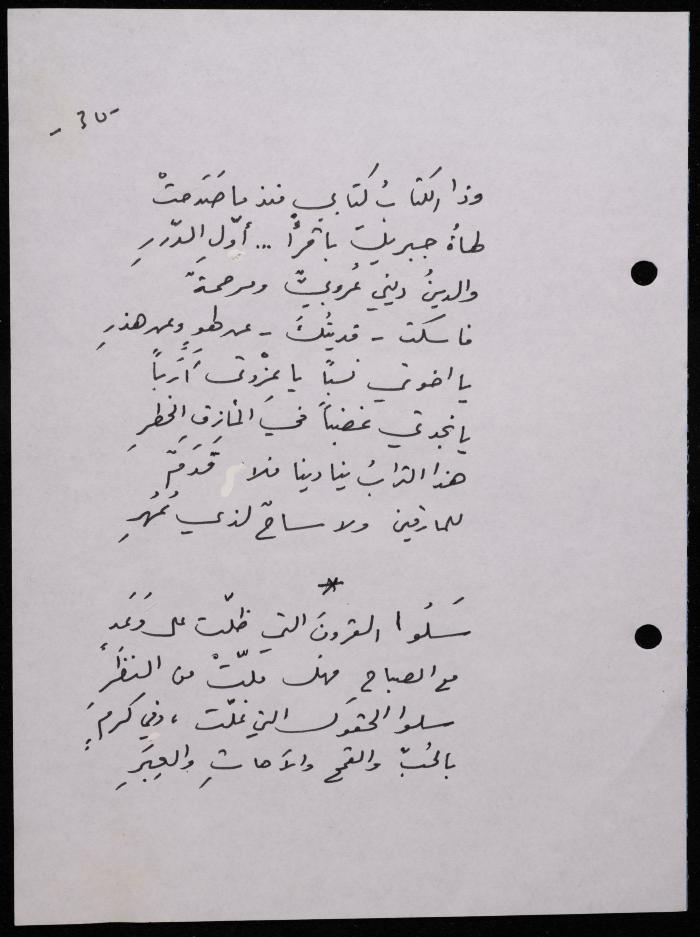 - ٣٥ -
وذا الكتابُ كتابي منذ ما صَدَحتْ
طهاةُ جبريلَ باقرأْ ... أوّلِ الدّررِ
والدينُ ديني عُروبيٌّ ومرحمةٌ
فاسكت - فديتُكَ - عن لهوٍ وعن هذرِ
يا اخوتي نسبًا يا عِزْوتي أَرَباً
يا نجدتي غضباً في المأزِقِ الخطرِ
هذا الترابُ ينادينا فلا قَدَمٌ
للمارقين ولا ساحٌ لذي عُهُرِ
*
سَلُوا القرونَ التي ظلّت على وَعَدٍ
مع الصباحِ فهل ملّتْ من النظَرِ
سلوا الحقولَ التي غلّت، وفي كرمٍ،
بالحُبّ والقمحِ والآهاتِ والعِبَرِ